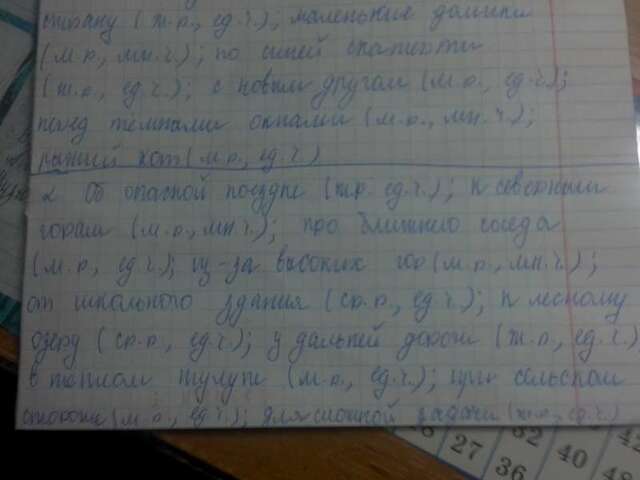 страну (ж.р., ед.ч.); маленькие домики
(м.р., мн.ч.); по синей скатерти
(ж.р., ед.ч.); с новым другом (м.р., ед.ч.);
перед темными окнами (м.р., мн.ч.);
рыжий кот (м.р., ед.ч.)
2 Об опасной поездке (ж.р. ед.ч.); к северным
горам (м.р., мн.ч.); про ближнего соседа
(м.р., ед.ч.); из-за высоких гор (м.р., мн.ч.);
от школьного здания (ср.р., ед.ч.); к лесному
озеру (ср.р., ед.ч.); у дальней дороги (ж.р., ед.ч.)
в теплом тулупе (м.р., ед.ч.); при сельском
стороже (м.р., ед.ч.); для сложной задачи (ж.р., ед.ч.)
27
32
36
40
42